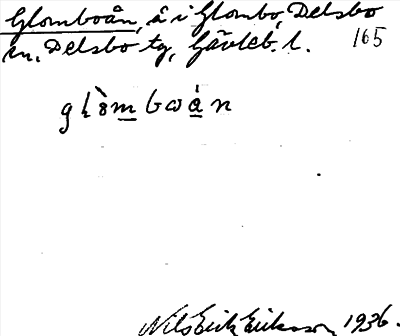 Glomboån, å i Glombo, Delsbo
sn, Delsbo tg, Gävleb. l. 165
Nils Erik Eriksson 1936.